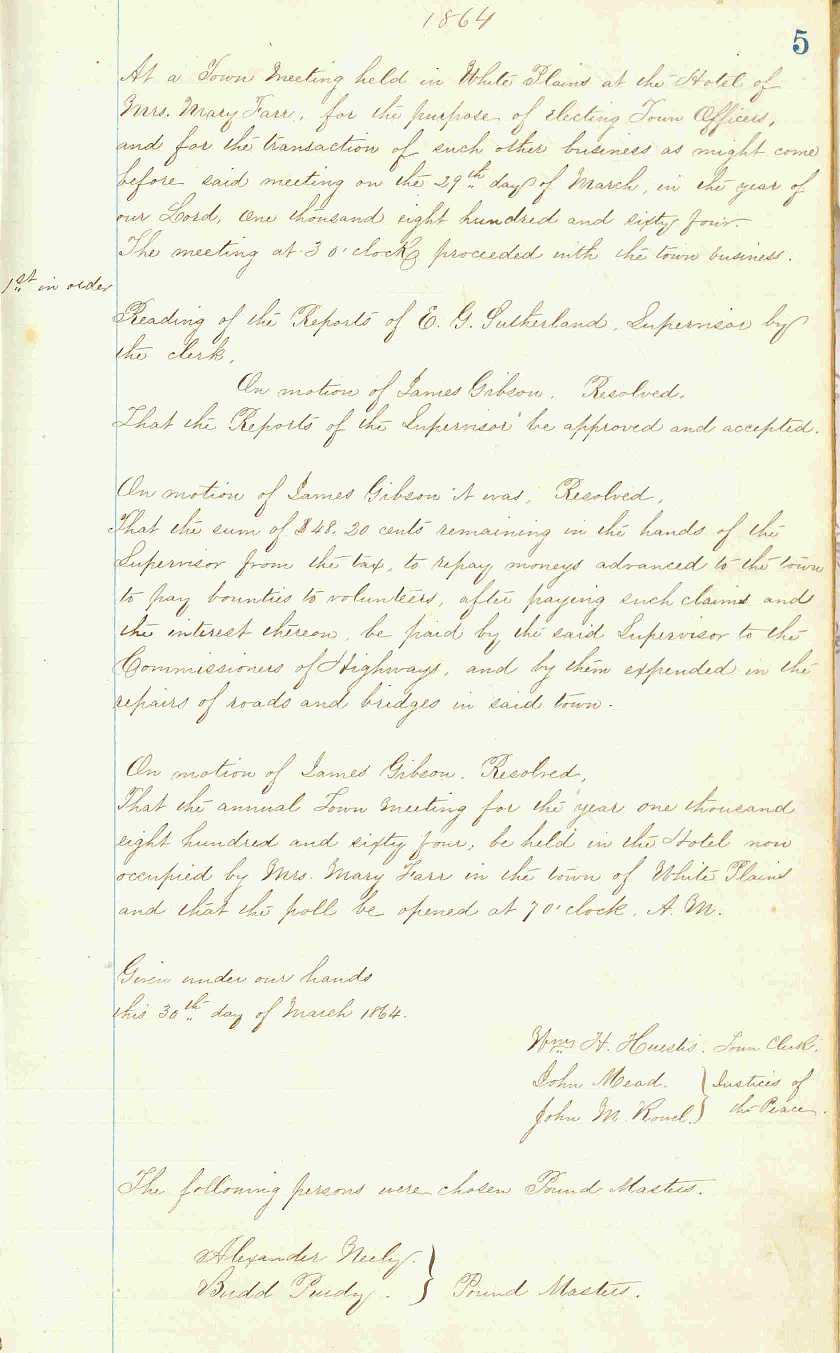 1864
5
At a Town Meeting held in White Plains at the Hotel of
Mrs. Mary Farr, for the purpose of electing Town Officers,
and for the transaction of such other business as might come
before said meeting on the 29th day of March, in the year of
our Lord, one thousand eight hundred and sixty four.
The meeting at 3 o'clock proceeded with the town business.
1st in order
Reading of the Reports of E. G. Sutherland, Supervisor by
the clerk.
On motion of James Gibson. Resolved.
That the Reports of the Supervisor be approved and accepted.
On motion of James Gibson it was, Resolved,
That the sum of $48.20 cents remaining in the hands of the
Supervisor from the tax, to repay moneys advanced to the town
to pay bounties to volunteers, after paying such claims and
the interest thereon, be paid by the said Supervisor to the
Commissioners of Highways, and by them expended in the
repairs of roads and bridges in said town.
On motion of James Gibson. Resolved,
That the annual Town Meeting for the year one thousand
eight hundred and sixty four, be held in the Hotel now
occupied by Mrs. Mary Farr in the town of White Plains
and that the poll be opened at 7 o'clock, A. M.
Given under our hands
this 30th day of March 1864.
Wm H. Huestis. Town Clerk.
John Mead. } Justices of
John M. } the Peace.
The following persons were chosen Pound Masters.
Alexander Neely. }
Budd Purdy. } Pound Masters.